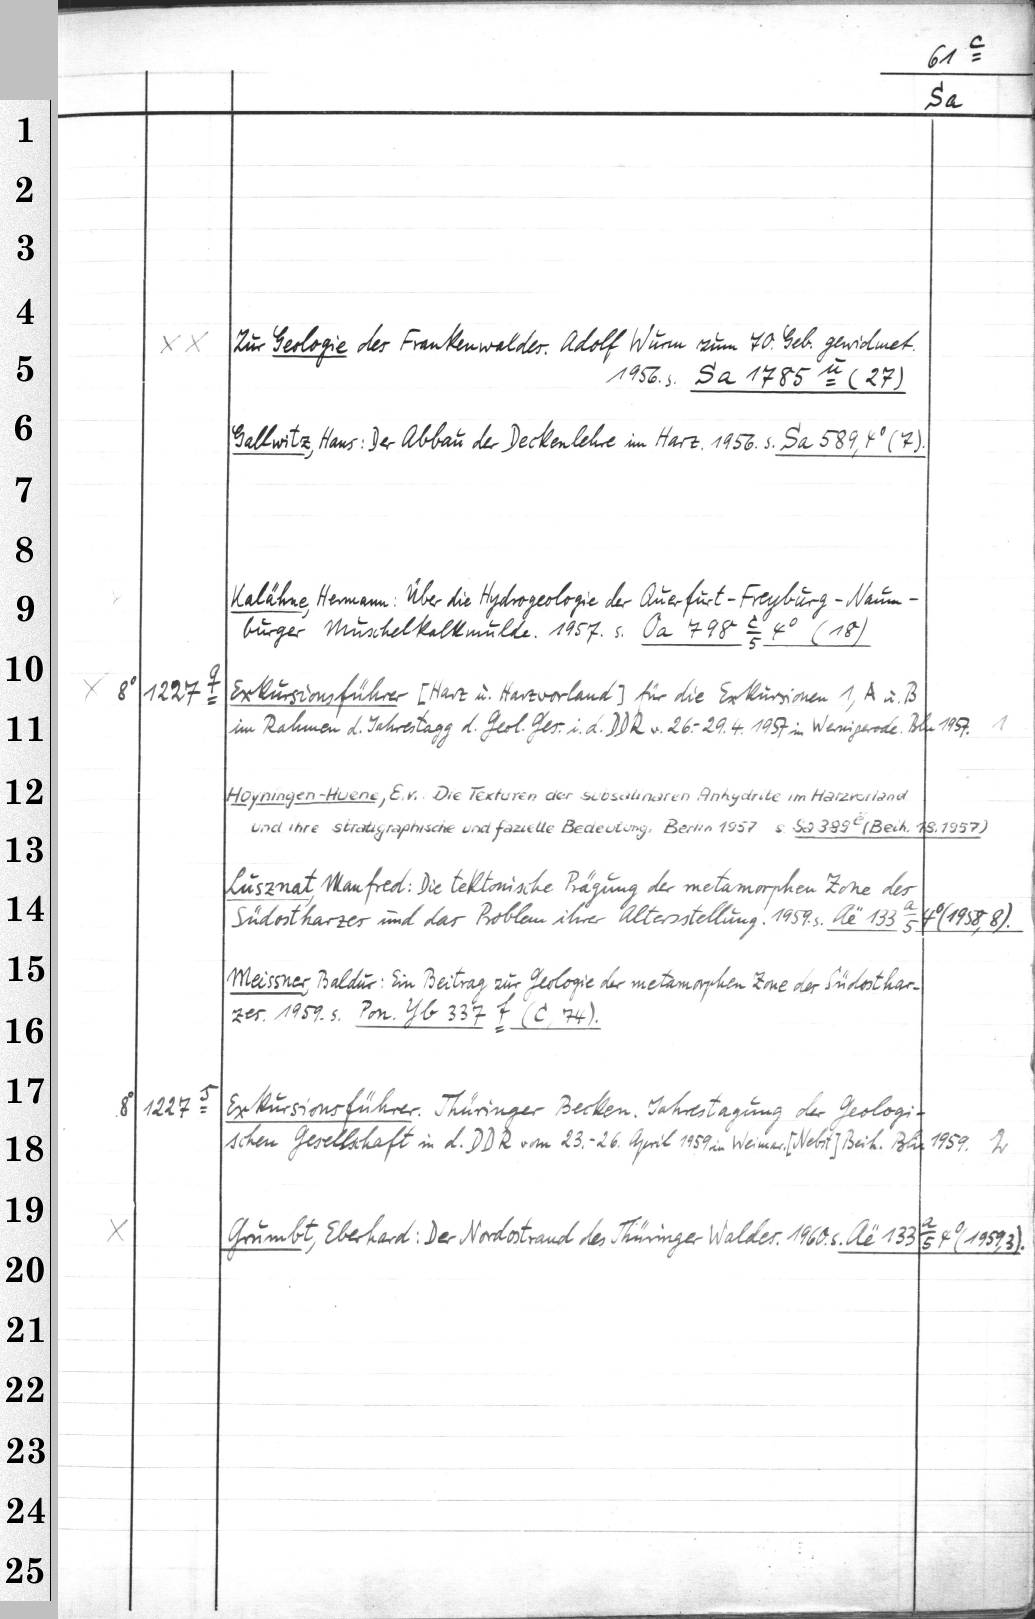 61 c
Sa
1
2
3
4
5
6
7
8
9
10
11
12
13
14
15
16
17
18
19
20
21
22
23
24
25
XX Zur Geologie des Frankenwaldes. Adolf Wurm zum 70. Geb. gewidmet.
1956. s. Sa 1785 u (27)
Gallwitz, Hans: Der Abbau der Deckenlehre im Harz. 1956. s. Sa 589, 4° (7).
Kalähne, Hermann: Über die Hydrogeologie der Querfurt-Freyburg-Naum-
burger Muschelkalkmulde. 1957. s. Oa 798 c/5 4° (18)
X 8° 1227 q Exkursionsführer [Harz u. Harzvorland] für die Exkursionen 1, A u. B
im Rahmen d. Jahrestagg d. Geol. Ges. i. d. DDR v. 26.-29.4.1957 in Wernigerode. Bln 1957. 1
Hoyningen-Huene, E.v.. Die Texturen der subsalinaren Anhydrite im Harzvorland
und ihre stratigraphische und fazielle Bedeutung. Berlin 1957 s. Sa 399 e (Beih. 18.1957)
Lusznat Manfred: Die tektonische Prägung der metamorphen Zone des
Südostharzes und das Problem ihrer Altersstellung. 1959. s. Aë 133 a/5 4° (1958, 8).
Meissner, Baldur: Ein Beitrag zur Geologie der metamorphen Zone der Südosthar-
zes. 1959. s. Pon. Yb 337 f (C, 74).
8° 1227 s Exkursionsführer. Thüringer Becken. Jahrestagung der Geologi-
schen Gesellschaft in d. DDR vom 23.-26. April 1959 in Weimar. [Nebst] Beih. Bln 1959. 2
X Grumbt, Eberhard: Der Nordostrand des Thüringer Waldes. 1960. s. Aë 133 a/5 4° (1959,3).